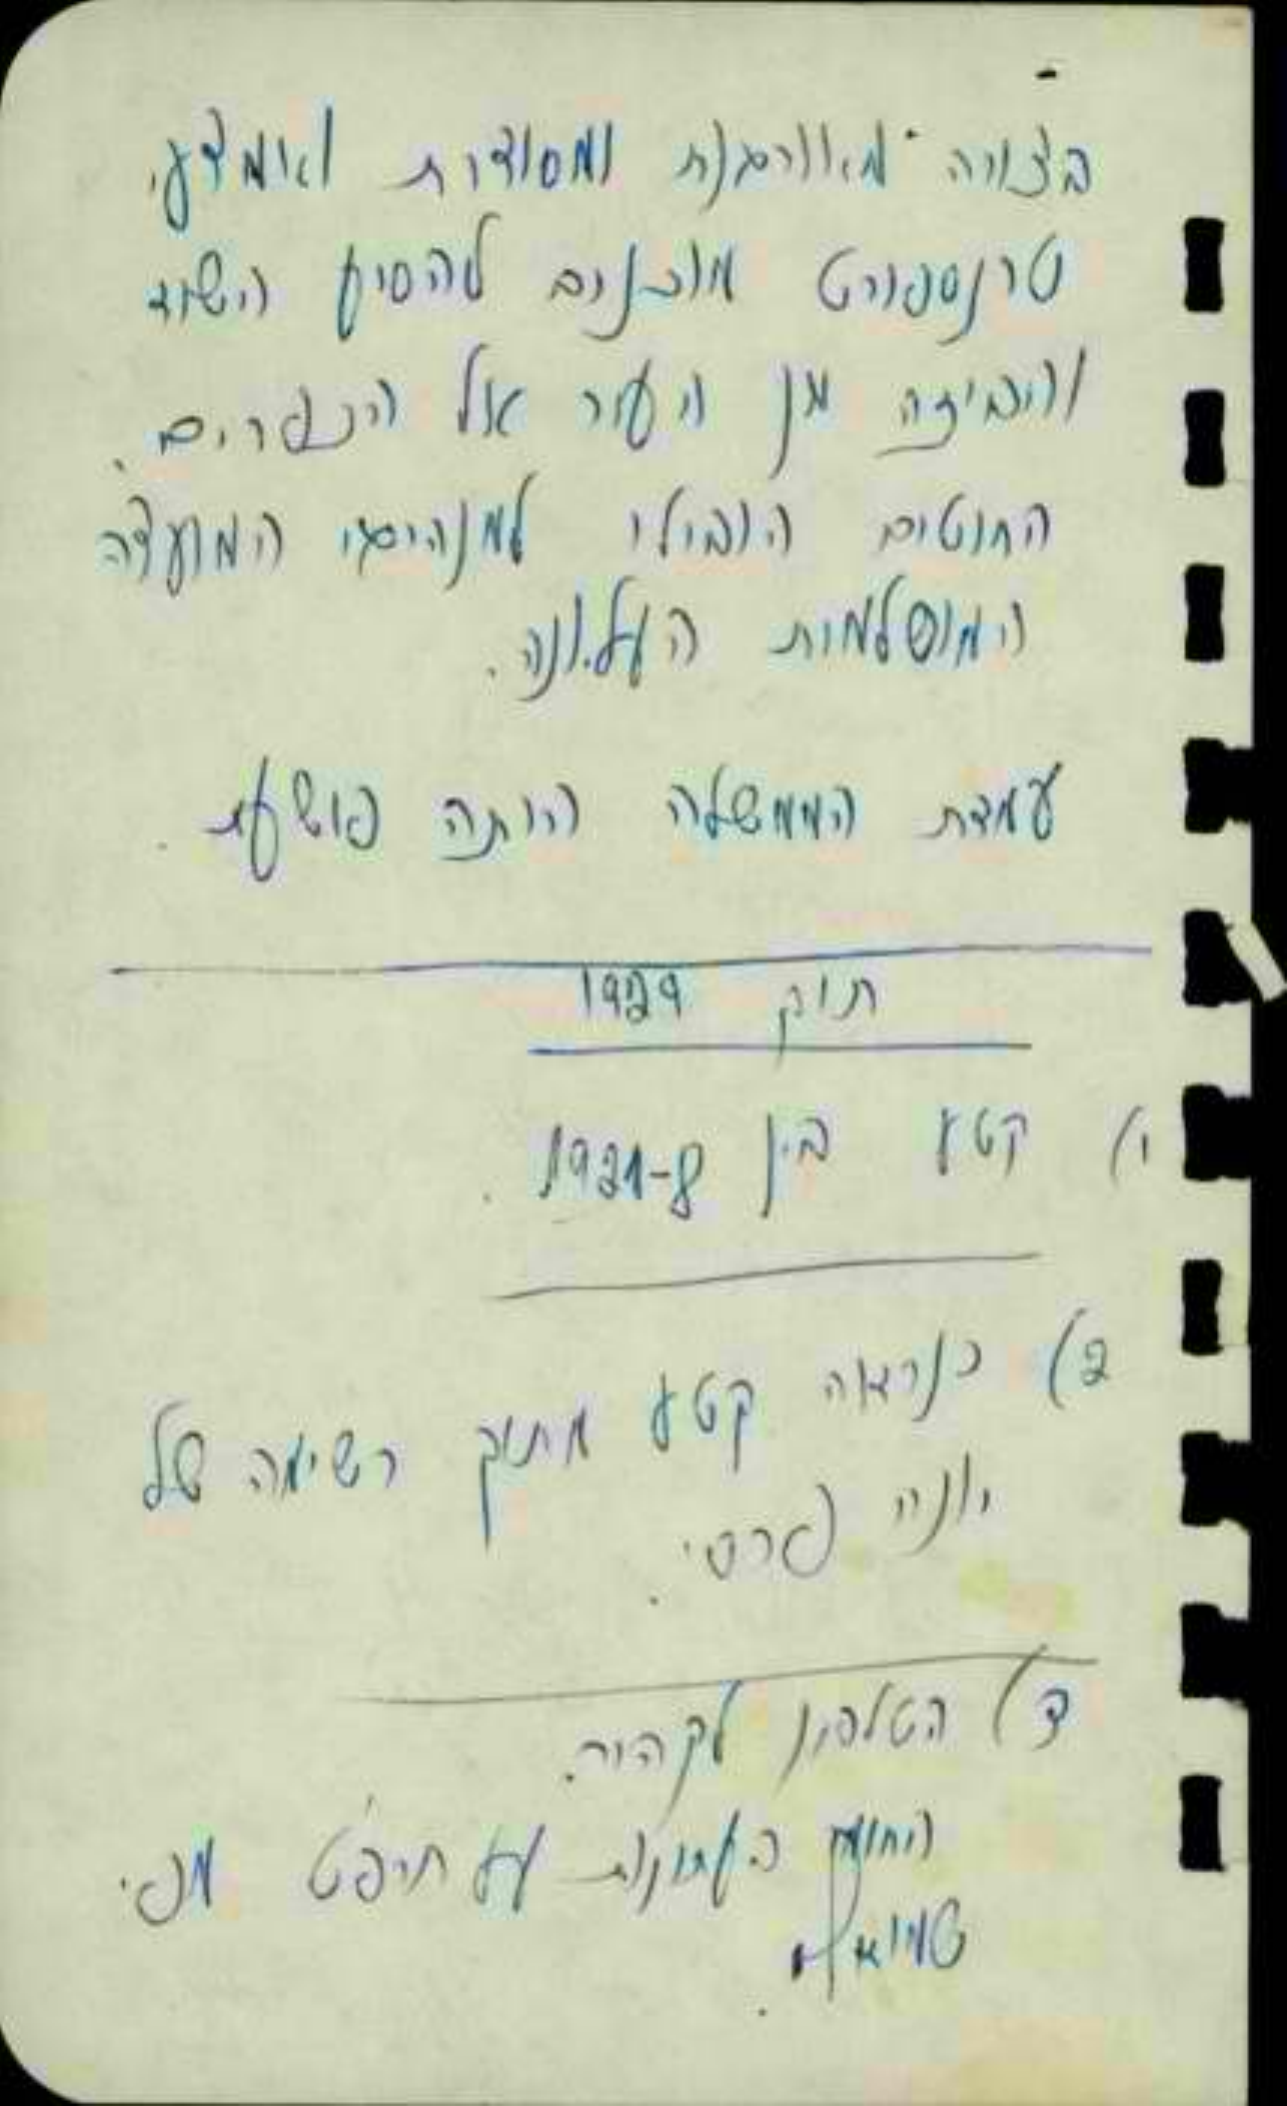 בצורה מאורגנת ומסודרת ואמצעי
טרנספורט מוכנים להסיע השוד
והביזה מן העיר אל הכפרים.
החוטים הובילו למנהיגי המועדה
המוסלמית העליונה.
עמדת הממשלה היתה פושעת.
תוק 1929
1) קטע בין 1921-8.
2) כנראה קטע מתוק רשימה של
יונה פרסי.
3) הטלפון לקהיר.
העתונות על חיפט מפי
שמואל.